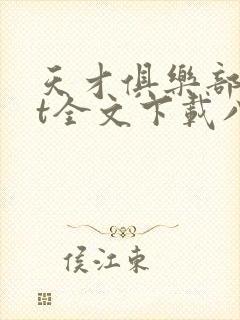 天才俱樂部
t全文下載八
侯江東